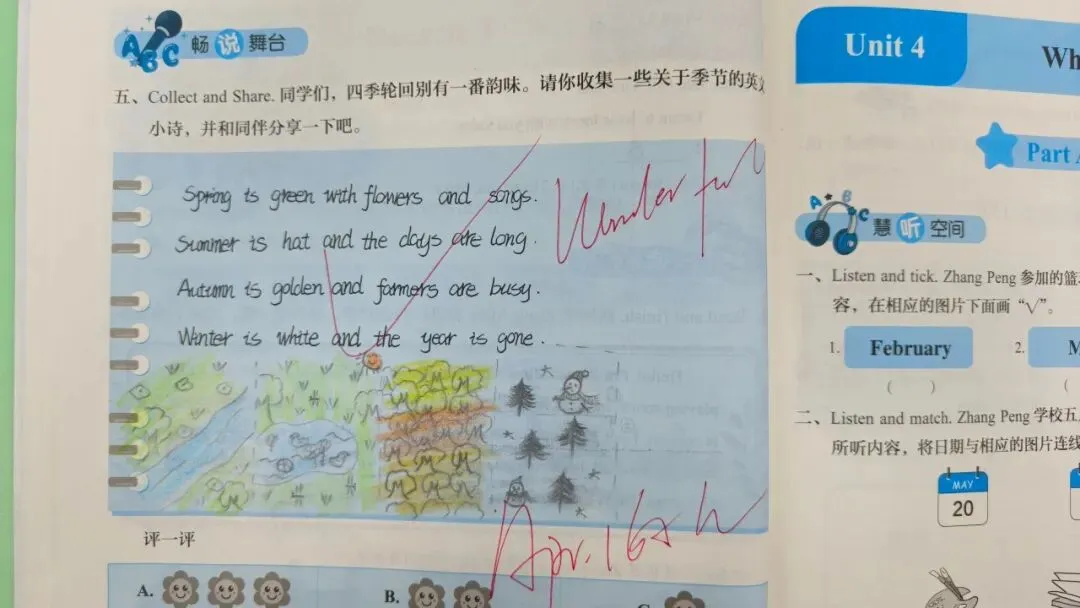 ABC 畅说舞台
五、Collect and Share. 同学们，四季轮回别有一番韵味。请你收集一些关于季节的英文
小诗，并和同伴分享一下吧。
Spring is green with flowers and songs.
Summer is hat and the days are long.
Autumn is golden and farmers are busy.
Winter is white and the year is gone.
Wonderful
Apr. 16th
评一评
A.
B.
C.
Unit 4
Wh
Part A
ABC 慧听空间
一、Listen and tick. Zhang Peng 参加的篮
容，在相应的图片下面画“√”。
1. February
2. M
(    )
(
二、Listen and match. Zhang Peng 学校五
所听内容，将日期与相应的图片连线
MAY
20